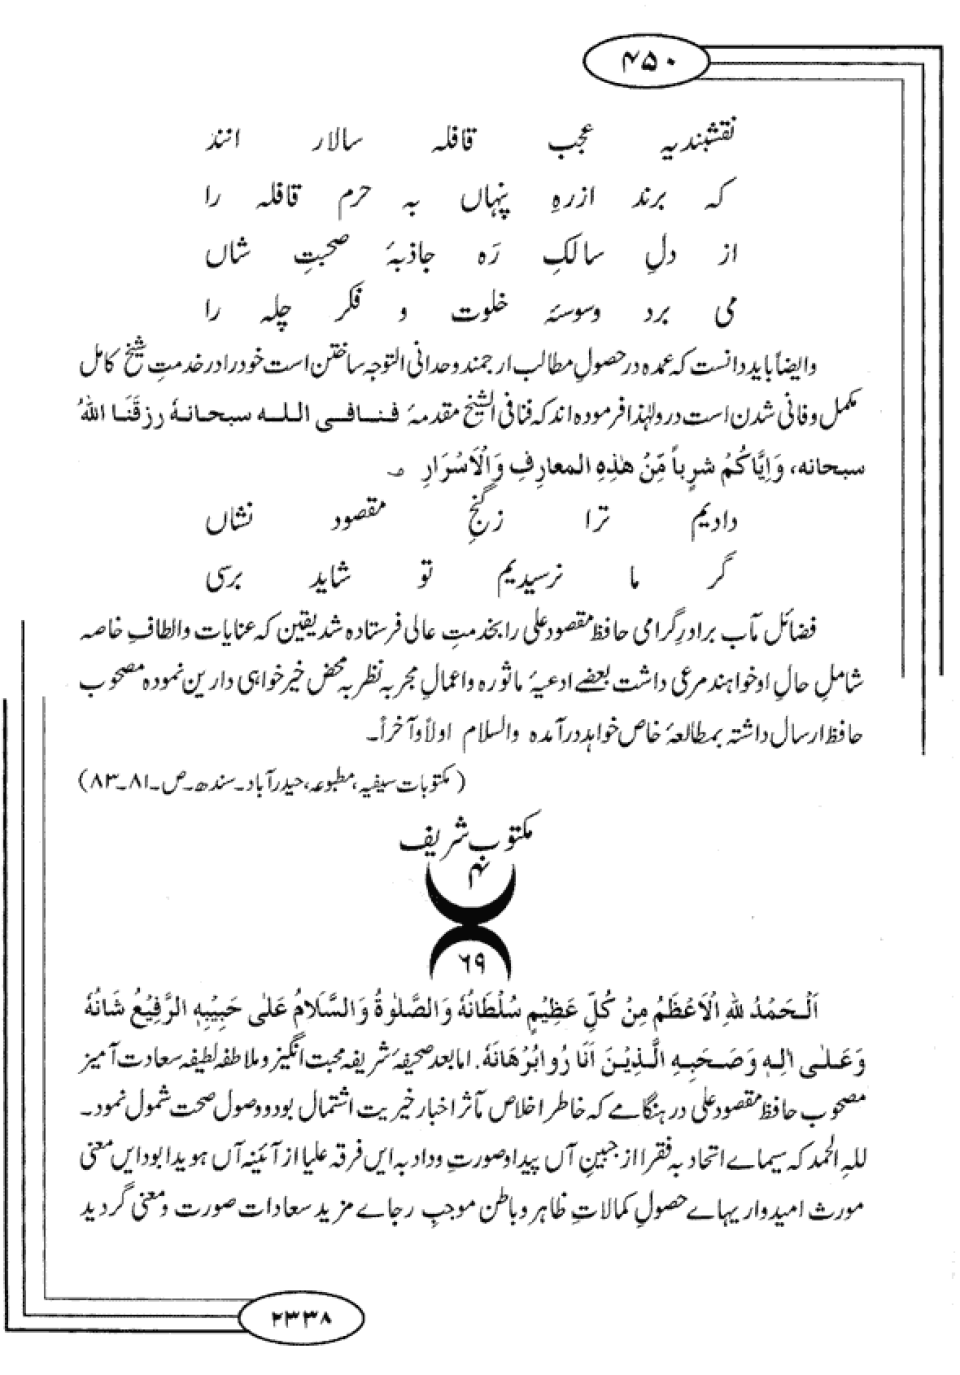 ۴۵۰
نقشبندیہ عجب قافلہ سالار انند
کہ برند ازرہِ پنہاں بہ حرم قافلہ را
از دلِ سالکِ رَہ جاذبۂ صحبتِ شاں
می برد وسوسۂ خلوت و فکر چلہ را
وایضاً باید دانست کہ عمدہ در حصولِ مطالب ارجمند وحدانی التوجہ ساختن است خود را در خدمتِ شیخ کامل
مکمل وفانی شدن است درو لہٰذا فرمودہ اند کہ فنا فی الشیخ مقدمۂ فنافی اللہ سبحانہٗ رزقَنَا اللہُ
سبحانہ، وَاِیَّاکُمْ شرباً مِّنْ ھٰذِہِ المعارفِ وَالْاَسْرَارِ ؎
دادیم ترا زگنجِ مقصود نشاں
گر ما نرسیدیم تو شاید برسی
فضائل مآب برادرِ گرامی حافظ مقصود علی را بخدمتِ عالی فرستادہ شد یقین کہ عنایات والطافِ خاصہ
شاملِ حالِ او خواہند مرعی داشت بعضے ادعیۂ ماثورہ واعمالِ مجربہ نظر بہ محض خیر خواہی دارین نمودہ مصحوب
حافظ ارسال داشتہ بمطالعۂ خاص خواہد درآمدہ والسلام اولاً وآخراً۔
(مکتوبات سیفیہ، مطبوعہ، حیدرآباد۔سندھ۔ص۔۸۱۔۸۳)
مکتوب شریف
۴
۶۹
اَلْحَمْدُ لِلّٰہِ الْاَعْظَمُ مِنْ کُلِّ عَظِیْمٍ سُلْطَانُہٗ وَالصَّلٰوۃُ وَالسَّلَامُ عَلٰی حَبِیْبِہِ الرَّفِیْعُ شَانُہٗ
وَعَلٰی اٰلِہٖ وَصَحَبِہِ الَّذِیْنَ اَنَا رُوا بُرْھَانَہٗ. اما بعد صحیفۂ شریفہ محبت انگیز وملاطفہ لطیفہ سعادت آمیز
مصحوب حافظ مقصود علی در ہنگامے کہ خاطر اخلاص مآثر اخبار خیریت اشتمال بود وصول صحت شمول نمود۔
للہِ الحمد کہ سیماے اتحاد بہ فقرا از جبینِ آں پیدا وصورتِ وداد بہ ایں فرقہ علیا از آئینہ آں ہویدا بود ایں معنی
مورث امیدواریہاے حصولِ کمالاتِ ظاہر وباطن موجبِ رجاے مزید سعادات صورت و معنی گردید
۲۳۳۸